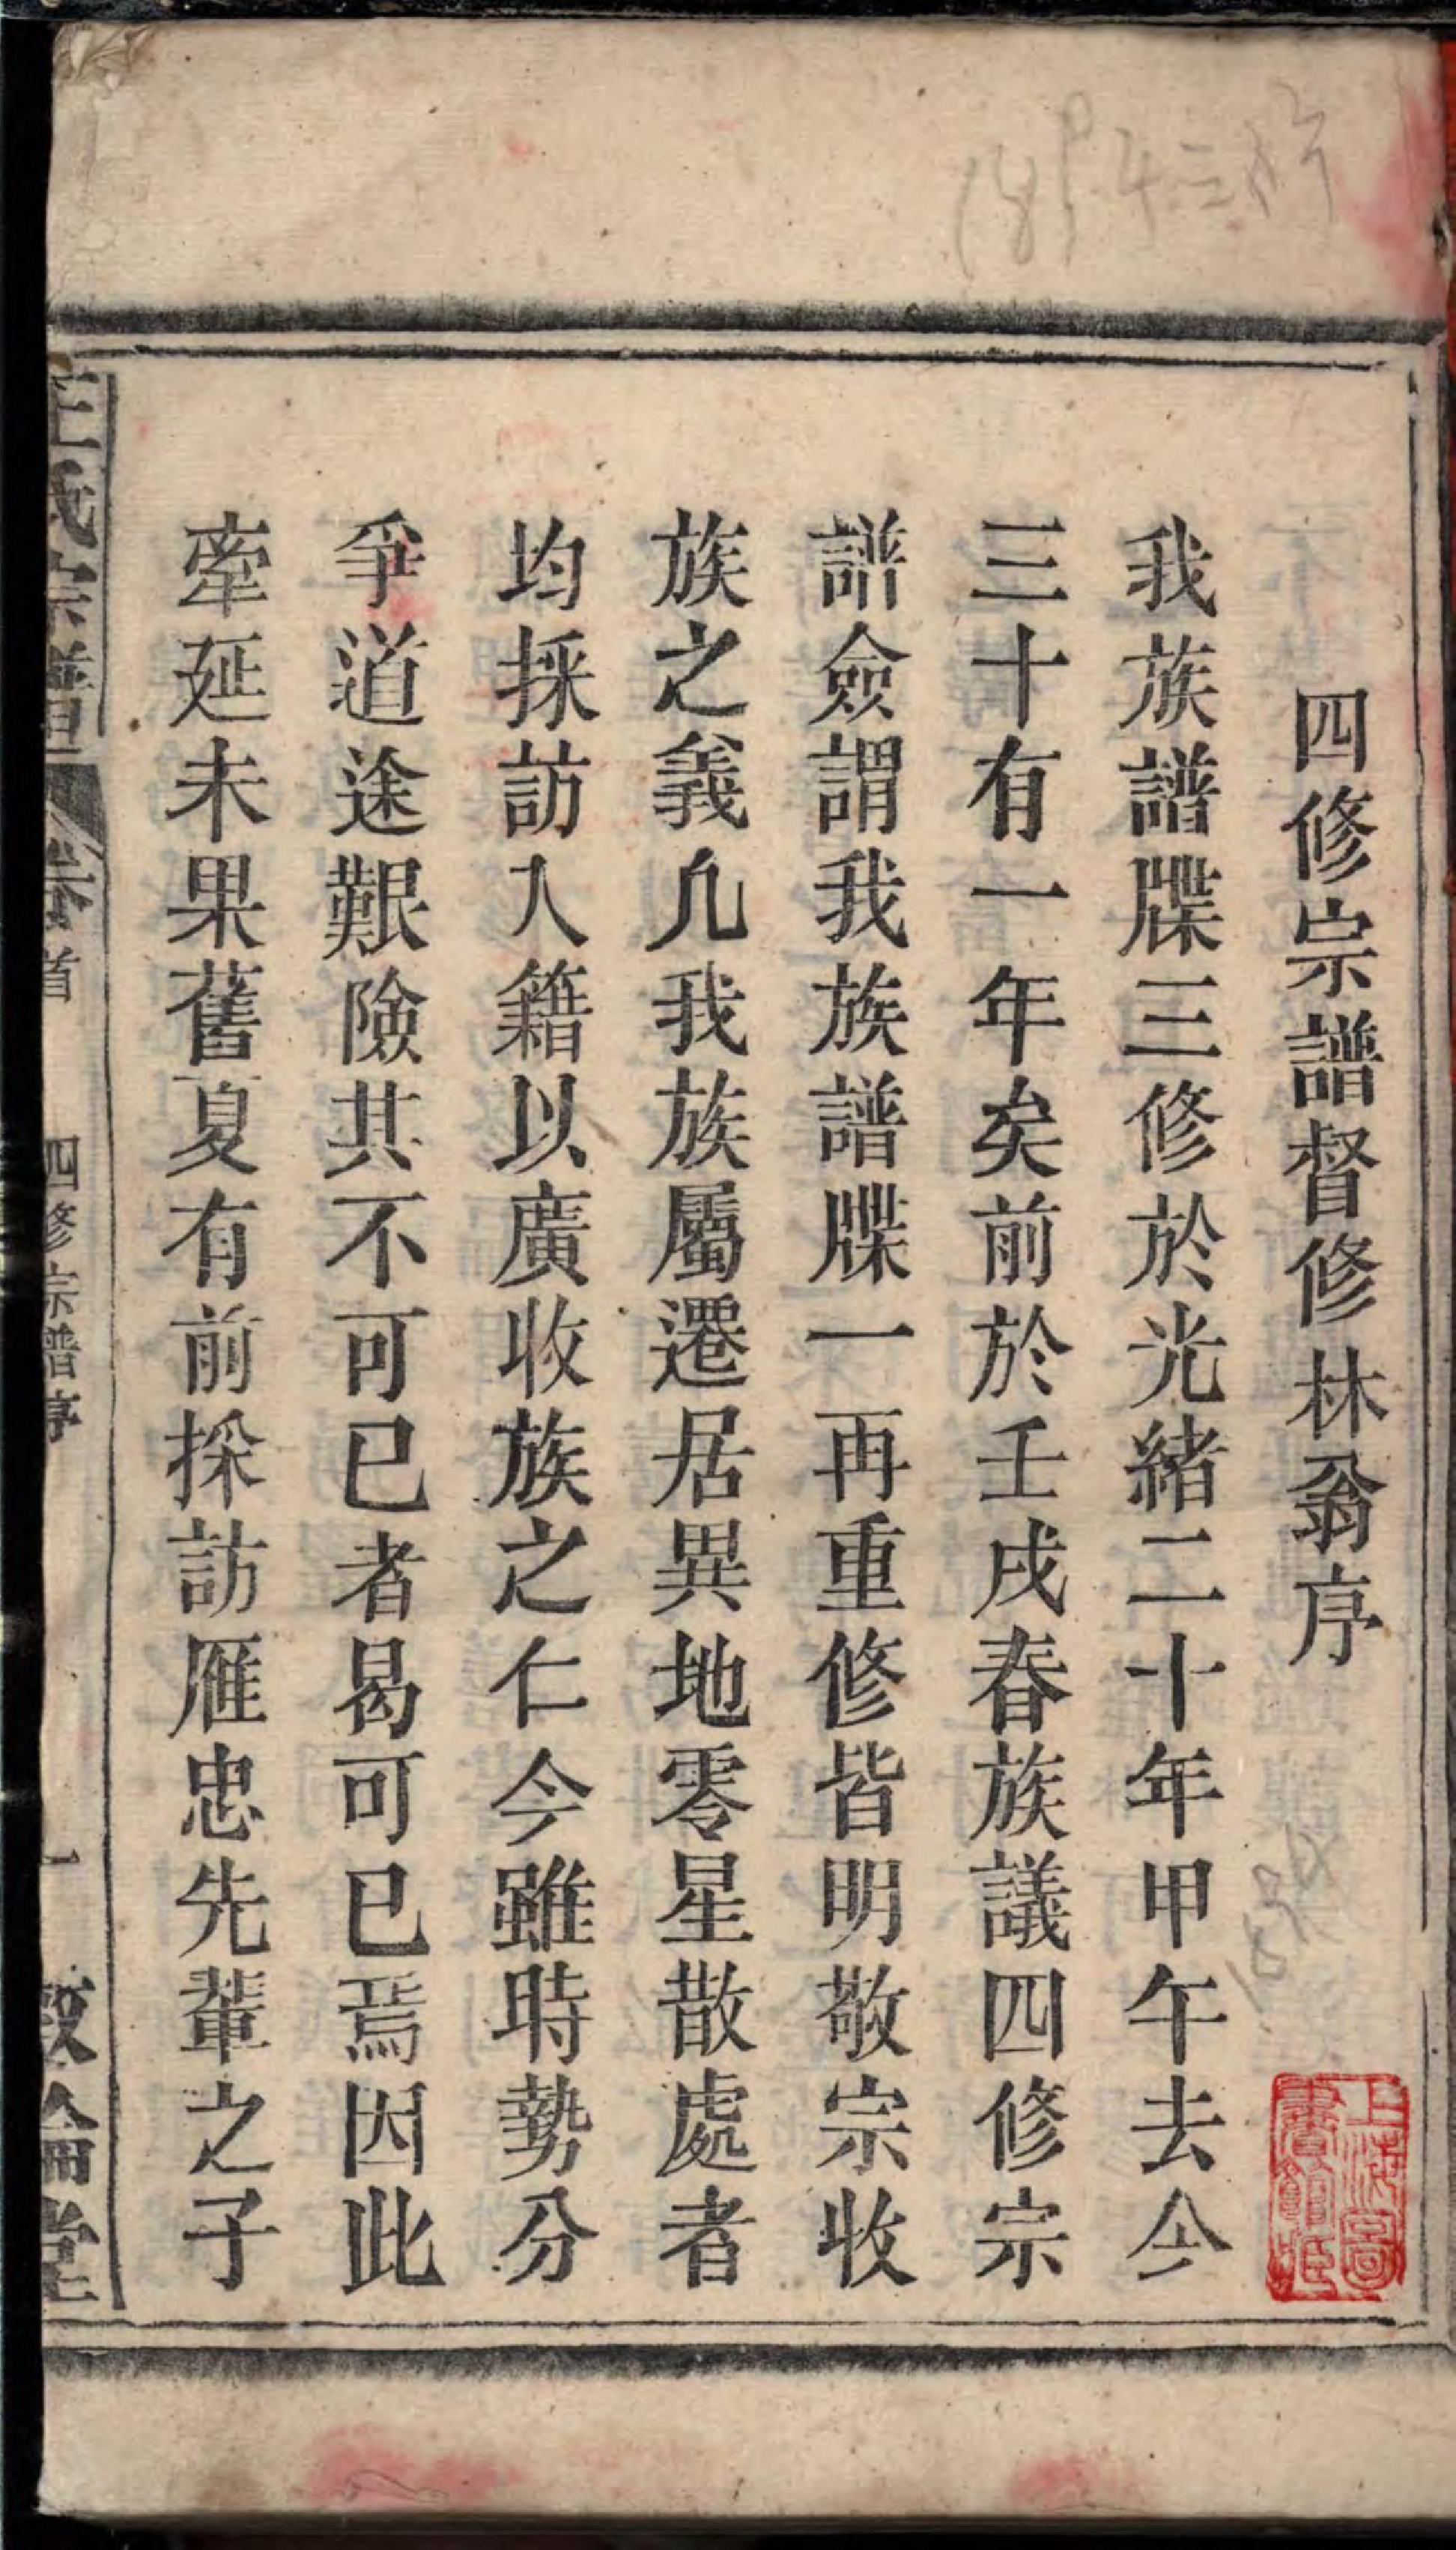 四修宗譜督修林翁序
我族譜牒三修於光緒二十年甲午去今
三十有一年矣前於壬戌春族議四修宗
譜僉謂我族譜牒一再重修皆明敬宗收
族之義凡我族屬遷居異地零星散處者
均採訪入籍以廣收族之仁今雖時勢分
爭道途艱險其不可已者曷可已焉因此
牽延未果舊夏有前採訪雁忠先輩之子
王氏宗譜 卷首 四修宗譜序 一 敦倫堂
上海圖書館藏